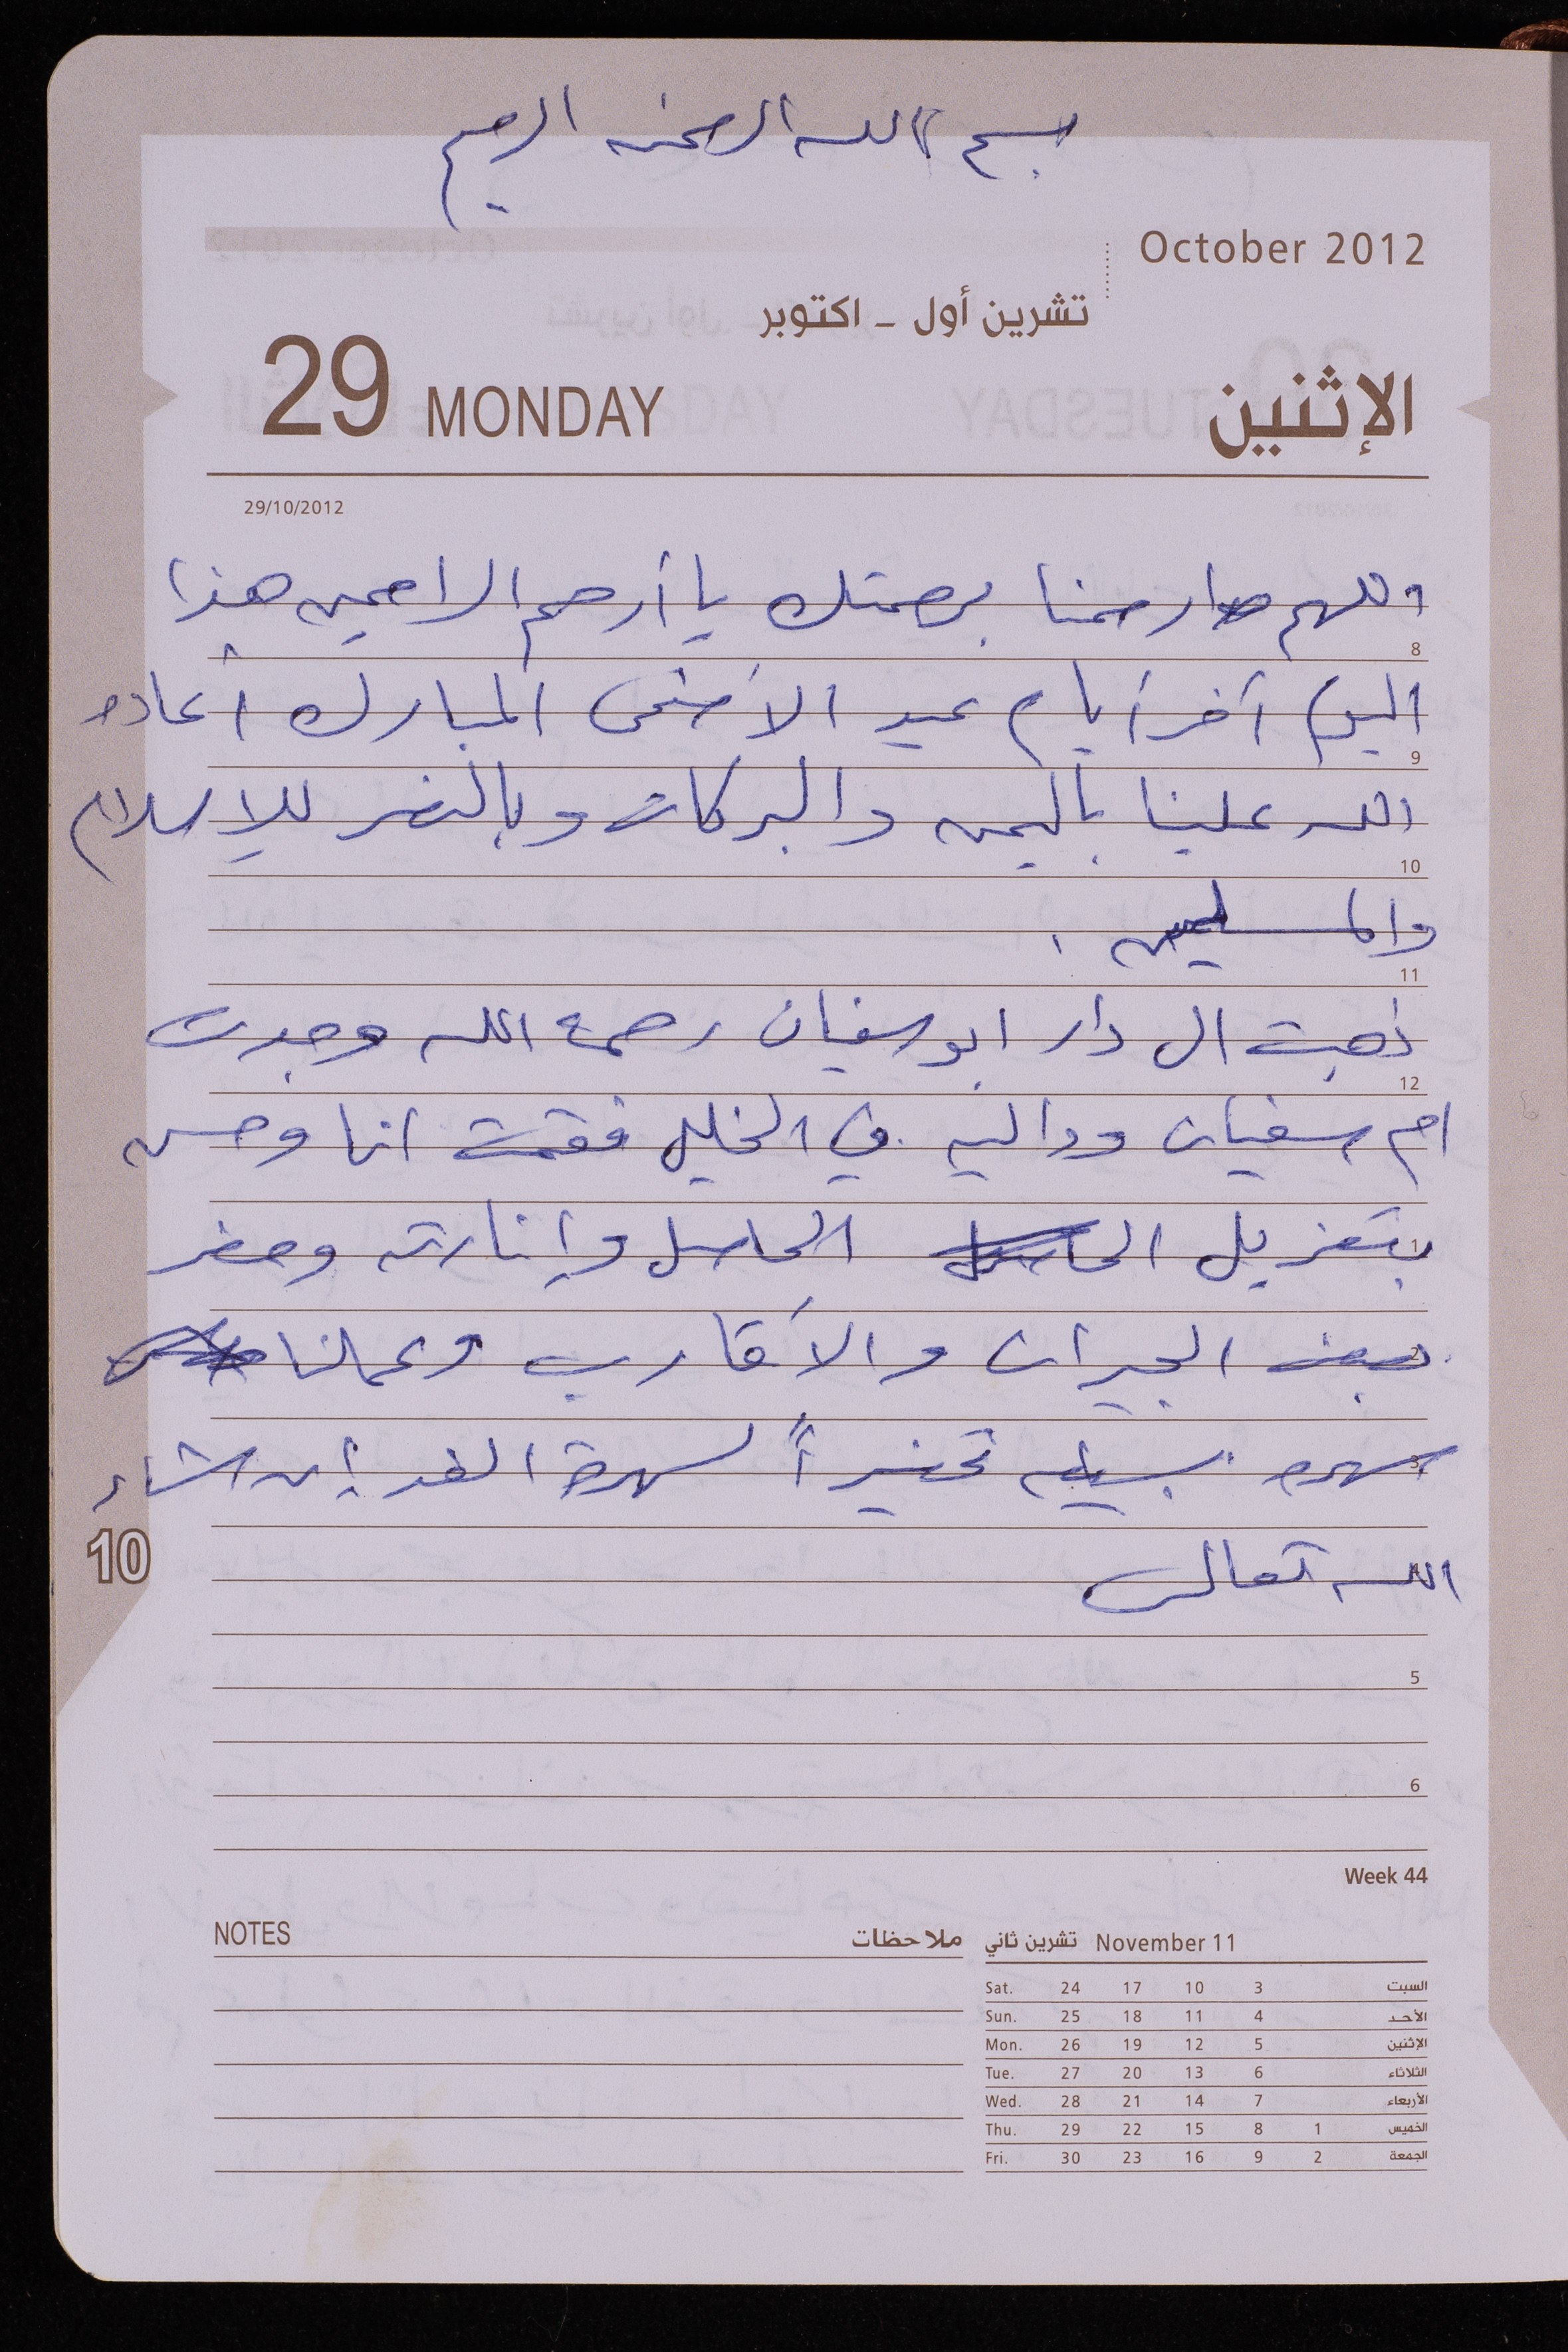 بسم الله الرحمن الرحيم
October 2012
تشرين أول - اكتوبر
29 MONDAY الإثنين
29/10/2012
اللهم ارحمنا برحمتك يا أرحم الراحمين هذا
8
اليوم آخر أيام عيد الأضحى المبارك أعاده
9
الله علينا باليمن والبركات وبالنصر للإسلام
10
والمسلمين .
11
ذهبت الى دار ابو سفيان رحمه الله وجدت
12
ام سفيان وداليه في الخليل فقمت انا وحسن
بتعزيل الحاصل وإنارته وحضر
1
بعض الجيران والأقارب وعملنا
2
سهره بسيطه تحضيراً لسهرة الغد إن شاء
3
10
الله تعالى
4
5
6
Week 44
NOTES ملاحظات
November 11 تشرين ثاني
Sat. 24 17 10 3 السبت
Sun. 25 18 11 4 الأحد
Mon. 26 19 12 5 الإثنين
Tue. 27 20 13 6 الثلاثاء
Wed. 28 21 14 7 الأربعاء
Thu. 29 22 15 8 1 الخميس
Fri. 30 23 16 9 2 الجمعة